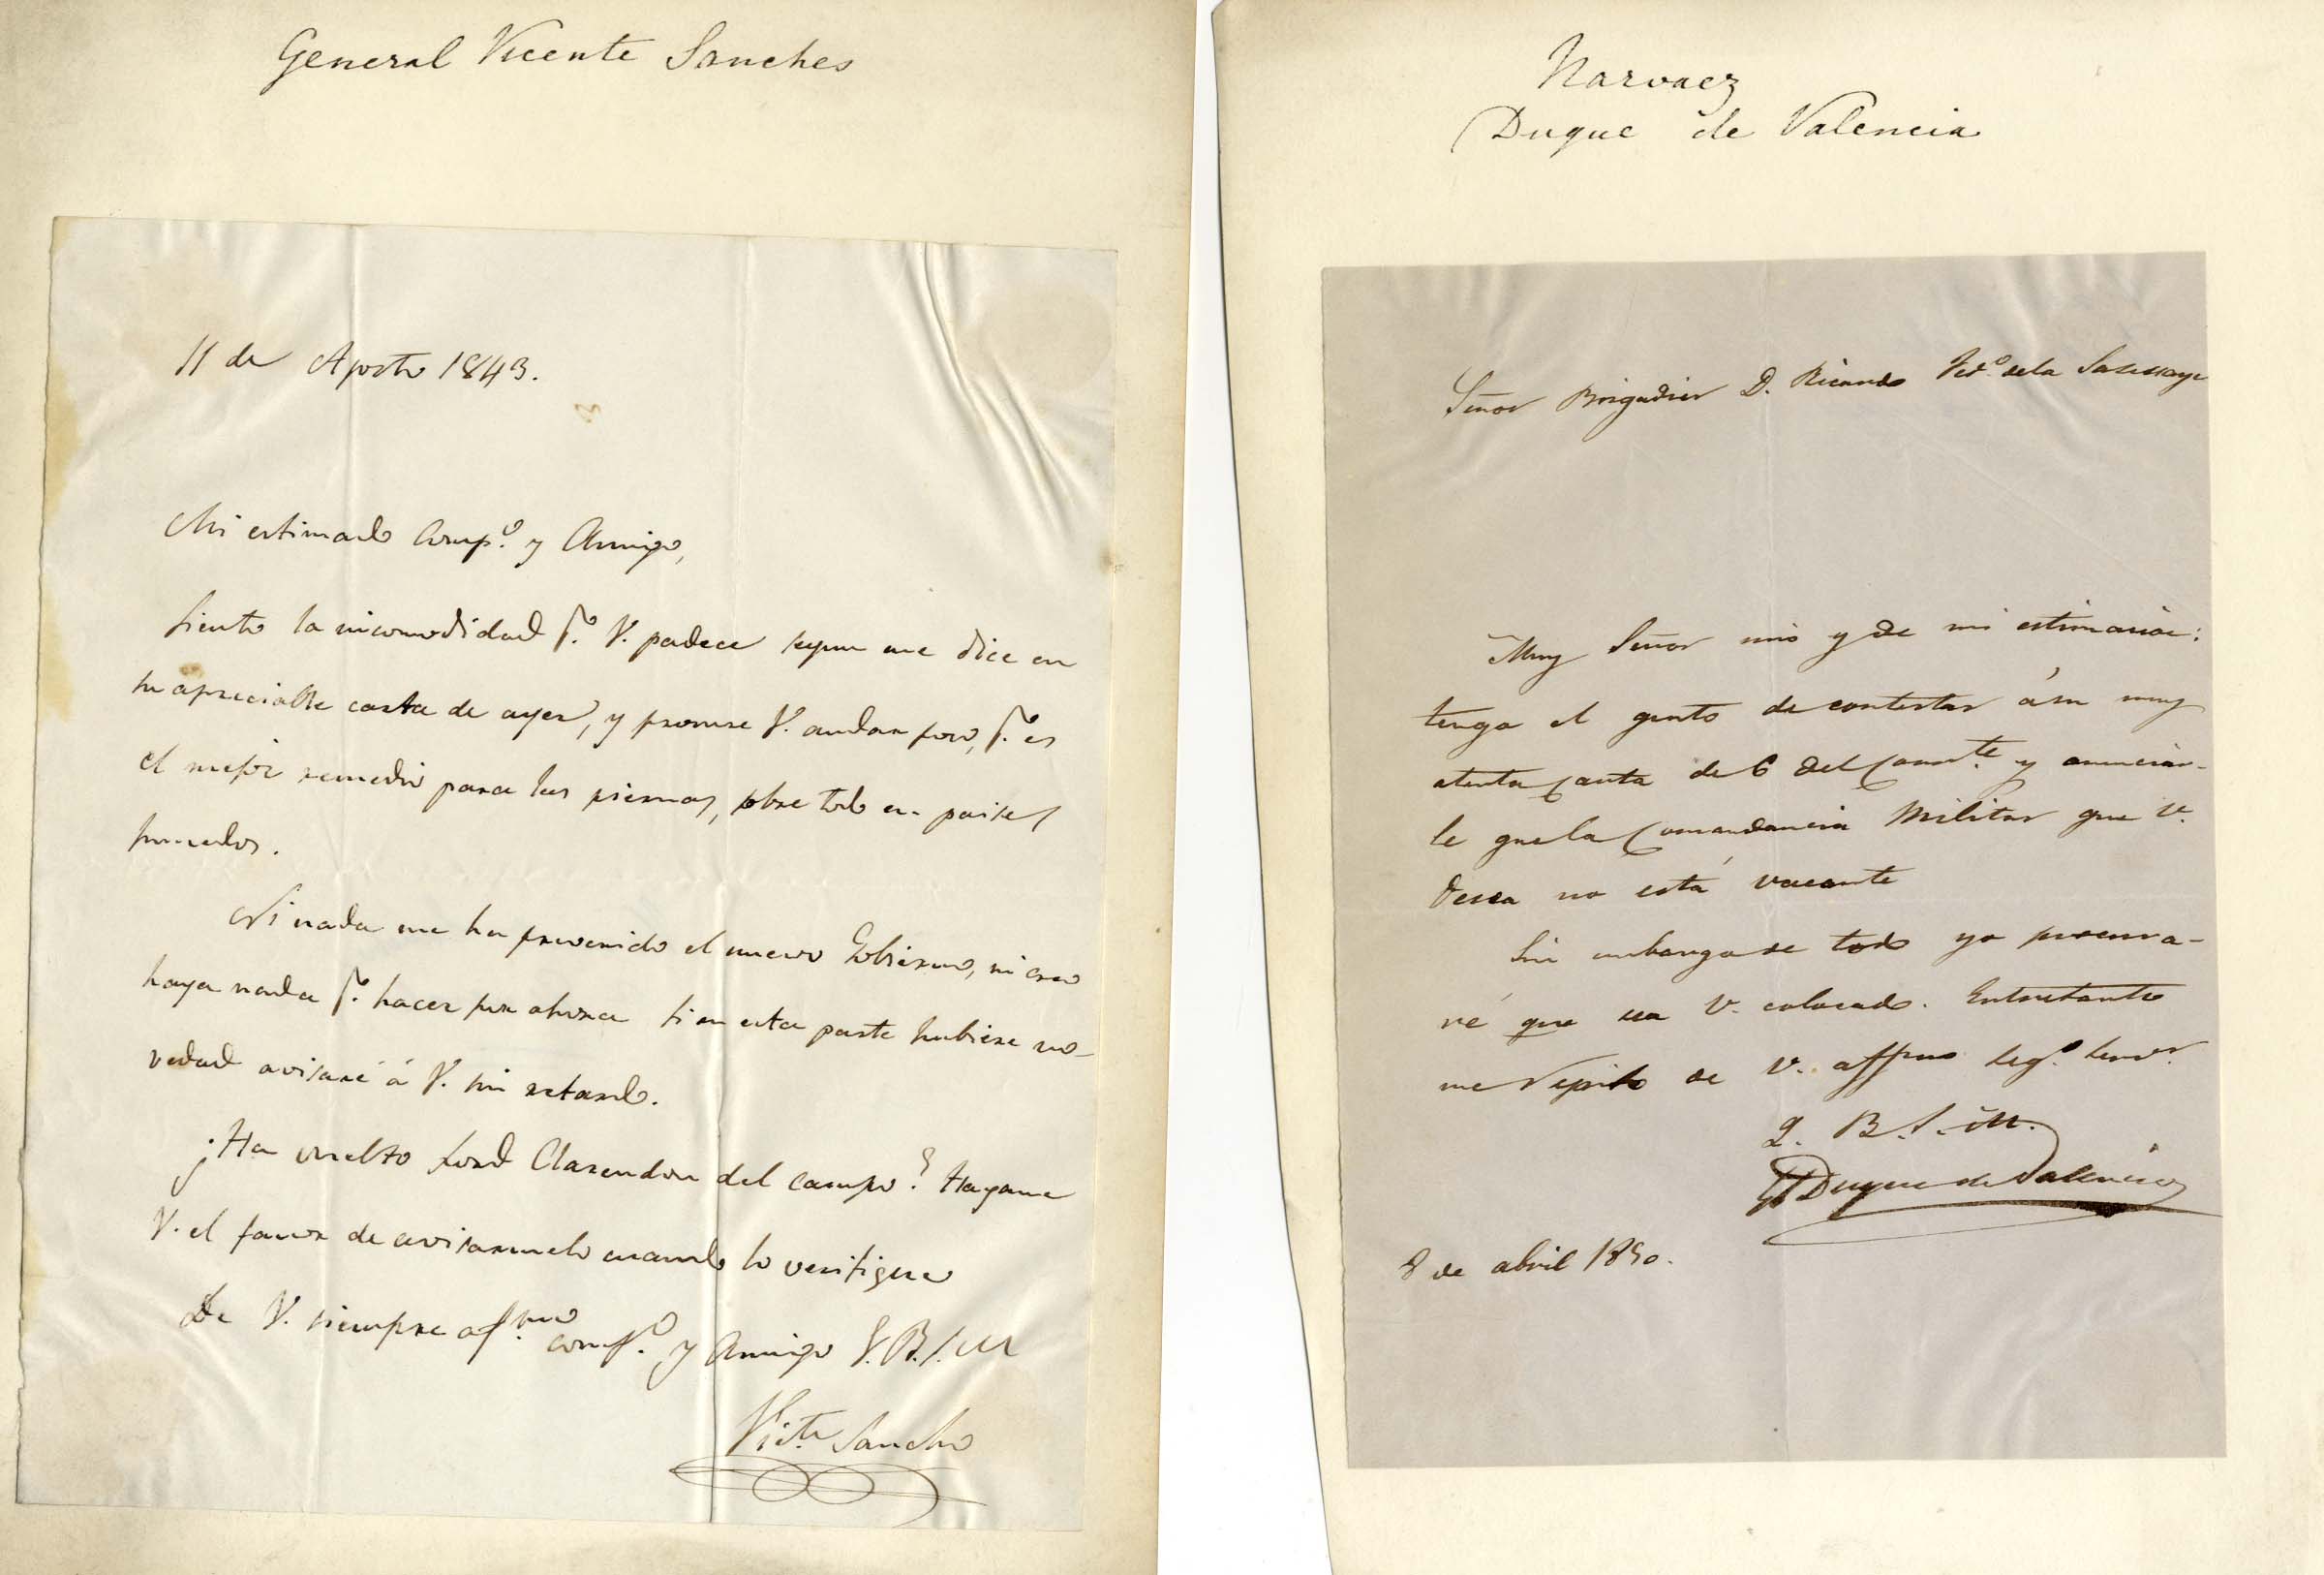 General Vicente Sanches
11 de Agosto 1843.
Mi estimado Comp.º y Amigo,
Siento la incomodidad q.º V. padece segun me dice en
su apreciable carta de ayer, y procure V. andar poco, q.º es
el mejor remedio para las piernas, sobre todo en paises
humedos.
Ni nada me ha prevenido el nuevo Gobierno, ni creo
haya nada q.º hacer por ahora si en esta parte hubiere no-
vedad avisaré á V. sin retardo.
¿Ha vuelto Lord Clarendon del campo? Hagame
V. el favor de avisarmelo cuando lo verifique
De V. siempre af.mo comp.º y Amigo Q.B.S.M
Vic.te Sancho
Narvaez
Duque de Valencia
Señor Brigadier D. Ricardo de la
Muy Señor mio y de mi estimacion:
tengo el gusto de contestar á su muy
atenta carta de 6 del corr.te y anunciar-
le que la Comandancia Militar que V.
desea no está vacante
Sin embargo de todo yo procura-
ré que sea V. colocado. Entretanto
me repito de V. affmo seg.º serv.r
Q. B. S. M.
El Duque de Valencia
8 de abril 1850.